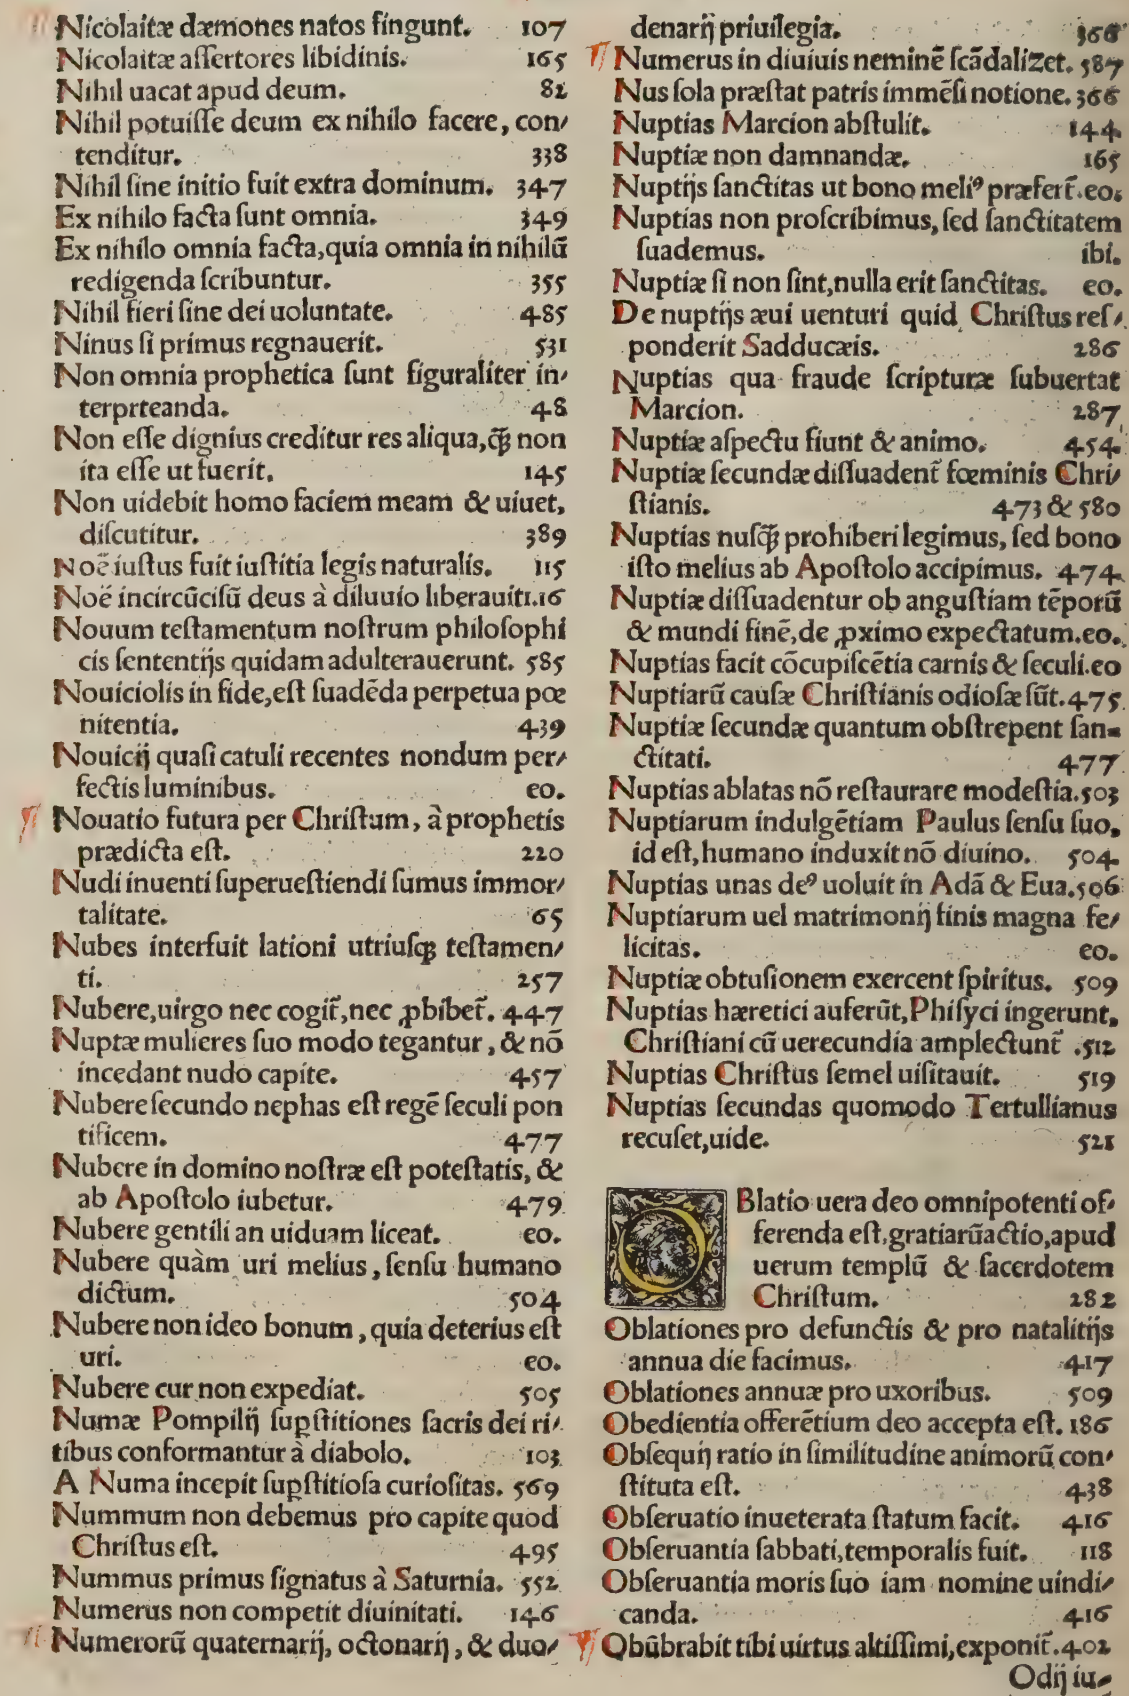 Nicolaitæ dæmones natos fingunt. 107
Nicolaitæ aſſertores libidinis. 165
Nihil uacat apud deum. 82
Nihil potuiſſe deum ex nihilo facere, con⸗
tenditur. 338
Nihil ſine initio fuit extra dominum. 347
Ex nihilo facta ſunt omnia. 349
Ex nihilo omnia facta, quia omnia in nihilū
redigenda ſcribuntur. 355
Nihil fieri ſine dei uoluntate. 485
Ninus ſi primus regnauerit. 531
Non omnia prophetica ſunt figuraliter in⸗
terprteanda. 48
Non eſſe dignius creditur res aliqua, ꝙ̃ non
ita eſſe ut fuerit. 145
Non uidebit homo faciem meam & uiuet,
diſcutitur. 389
Noë iuſtus fuit iuſtitia legis naturalis. 115
Noë incircūciſū deus à diluuio liberauit 1.16
Nouum teſtamentum noſtrum philoſophi
cis ſententijs quidam adulterauerunt. 585
Nouiciolis in fide, eſt ſuadēda perpetua pœ
nitentia. 439
Nouicij quaſi catuli recentes nondum per⸗
fectis luminibus. eo.
Nouatio futura per Chriſtum, à prophetis
prædicta eſt. 220
Nudi inuenti ſuperueſtiendi ſumus immor⸗
talitate. 65
Nubes interfuit lationi utriuſqꝫ teſtamen⸗
ti. 257
Nubere, uirgo nec cogit̃, nec ꝓhibet̃. 447
Nuptæ mulieres ſuo modo tegantur, & nō
incedant nudo capite. 457
Nubere ſecundo nephas eſt regē ſeculi pon
tificem. 477
Nubere in domino noſtræ eſt poteſtatis, &
ab Apoſtolo iubetur. 479
Nubere gentili an uiduam liceat. eo.
Nubere quàm uri melius, ſenſu humano
dictum. 504
Nubere non ideo bonum, quia deterius eſt
uri. eo.
Nubere cur non expediat. 505
Numæ Pompilij ſuꝑſtitiones ſacris dei ri⸗
tibus conformantur à diabolo. 103
A Numa incepit ſuꝑſtitioſa curioſitas. 569
Nummum non debemus pro capite quod
Chriſtus eſt. 495
Nummus primus ſignatus à Saturnia. 552
Numerus non competit diuinitati. 146
Numerorū quaternarij, octonarij, & duo⸗
denarij priuilegia. 366
Numerus in diuiuis neminē ſcādalizet. 587
Nus ſola præſtat patris immēſi notione. 366
Nuptias Marcion abſtulit. 144
Nuptiæ non damnandæ. 165
Nuptijs ſanctitas ut bono meliꝰ præfert̃. eo.
Nuptias non proſcribimus, ſed ſanctitatem
ſuademus. ibi.
Nuptiæ ſi non ſint, nulla erit ſanctitas. eo.
De nuptijs æui uenturi quid Chriſtus reſ⸗
ponderit Sadducæis. 286
Nuptias qua fraude ſcripturæ ſubuertat
Marcion. 287
Nuptiæ aſpectu fiunt & animo. 454
Nuptiæ ſecundæ diſſuadent̃ fœminis Chri⸗
ſtianis. 473 & 580
Nuptias nuſꝙ̃ prohiberi legimus, ſed bono
iſto melius ab Apoſtolo accipimus. 474
Nuptiæ diſſuadentur ob anguſtiam tēporū
& mundi finē, de ꝓximo expectatum. eo.
Nuptias facit cōcupiſcētia carnis & ſeculi. eo
Nuptiarū cauſæ Chriſtianis odioſæ ſūt. 475
Nuptiæ ſecundæ quantum obſtrepent ſan⸗
ctitati. 477
Nuptias ablatas nō reſtaurare modeſtia. 503
Nuptiarum indulgētiam Paulus ſenſu ſuo,
id eſt, humano induxit nō diuino. 504
Nuptias unas deꝰ uoluit in Adā & Eua. 506
Nuptiarum uel matrimonij finis magna fe⸗
licitas. eo.
Nuptiæ obtuſionem exercent ſpiritus. 509
Nuptias hæretici auferūt, Phiſyci ingerunt,
Chriſtiani cū uerecundia amplectunt̃. 512
Nuptias Chriſtus ſemel uiſitauit. 519
Nuptias ſecundas quomodo Tertullianus
recuſet, uide. 521
OBlatio uera deo omnipotenti of⸗
ferenda eſt, gratiarū actio, apud
uerum templū & ſacerdotem
Chriſtum. 282
Oblationes pro defunctis & pro natalitijs
annua die facimus. 417
Oblationes annuæ pro uxoribus. 509
Obedientia offerētium deo accepta eſt. 186
Obſequij ratio in ſimilitudine animorū con⸗
ſtituta eſt. 438
Obſeruatio inueterata ſtatum facit. 416
Obſeruantia ſabbati, temporalis fuit. 118
Obſeruantia moris ſuo iam nomine uindi⸗
canda. 416
Obūbrabit tibi uirtus altiſſimi, exponit̃. 402
Odij iu⸗